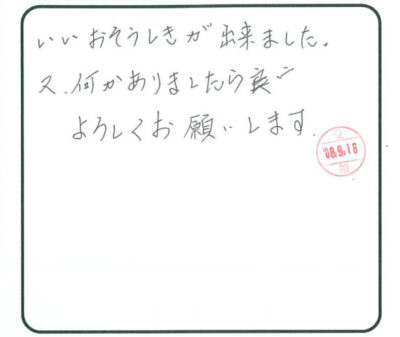 いいおそうしきが出来ました。
又、何かありましたら
よろしくお願いします。
'08.9.18